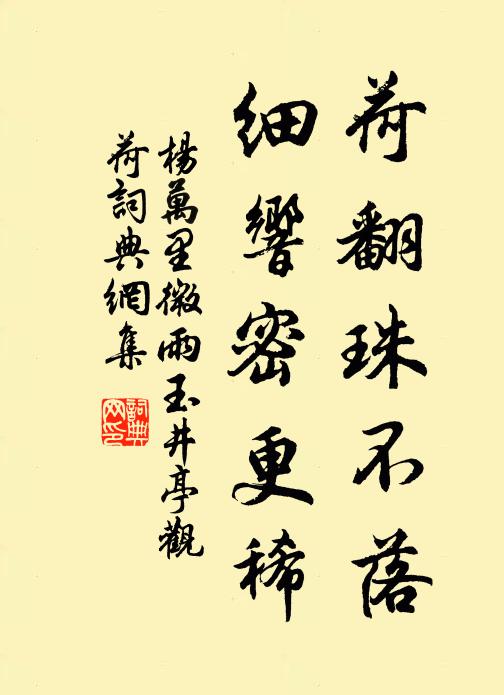 荷翻珠不落
细響密更稀
楊萬里微雨玉井亭觀
荷詞典網集
詞典
网印